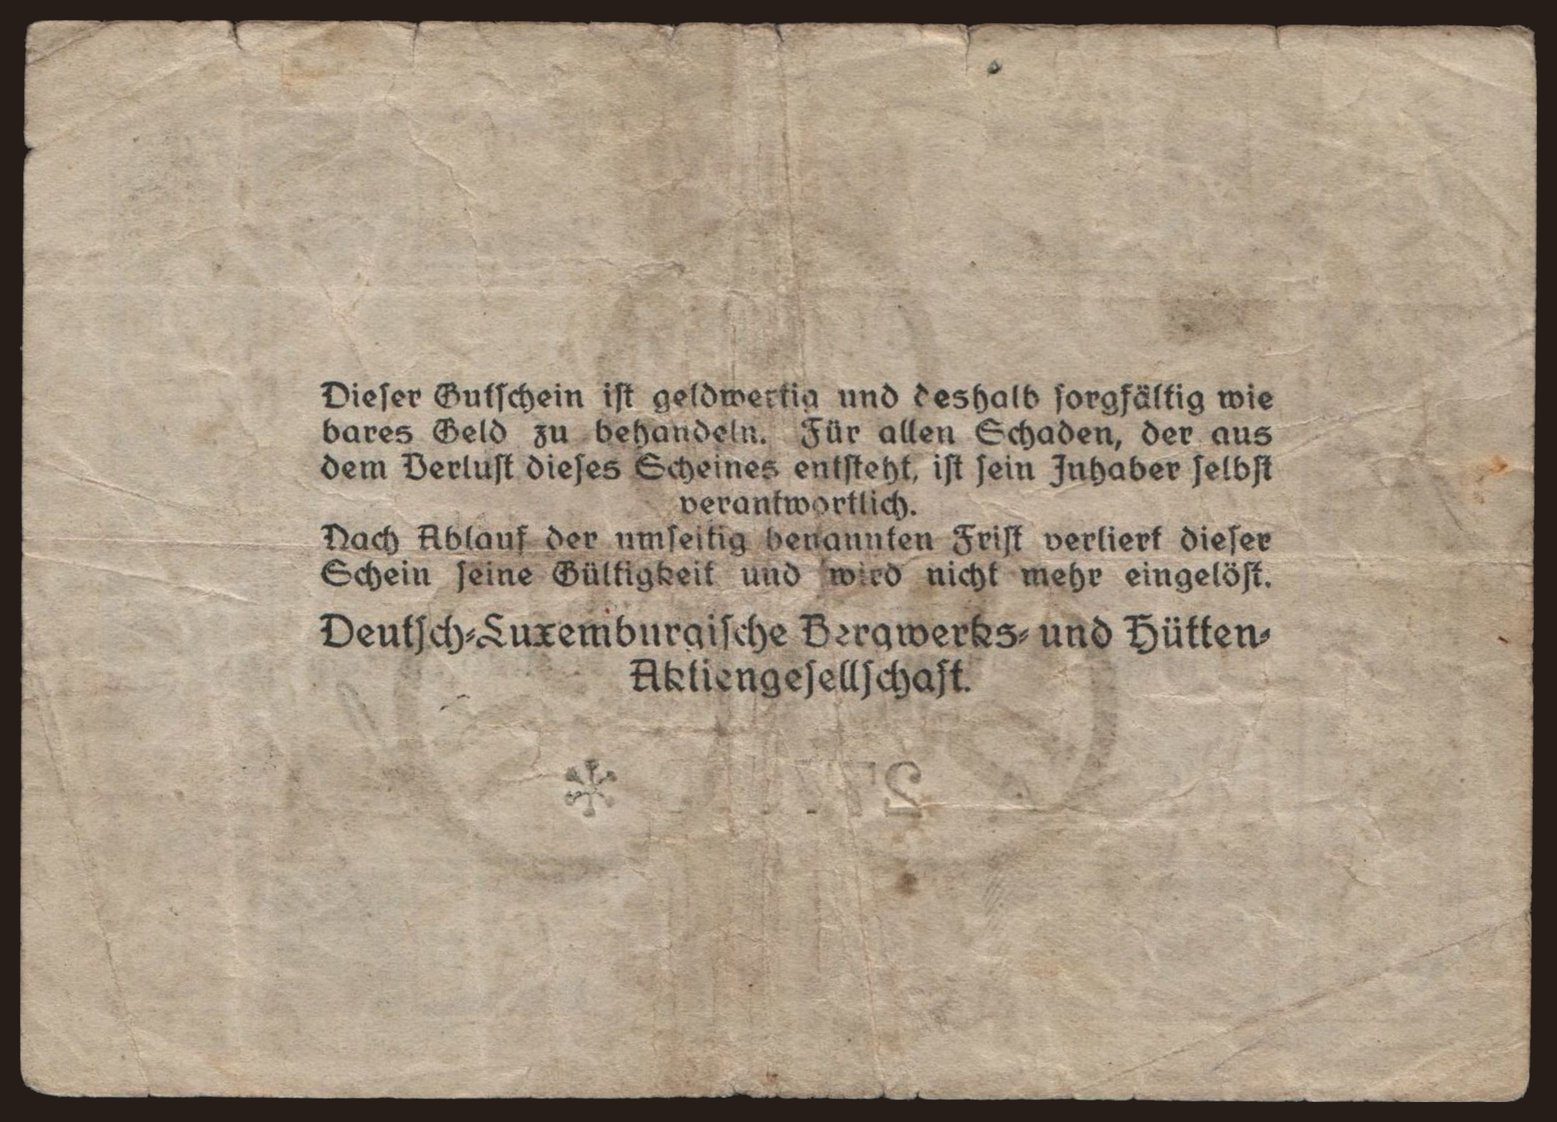 Dieser Gutschein ist geldwertig und deshalb sorgfältig wie
bares Geld zu behandeln. Für allen Schaden, der aus
dem Verlust dieses Scheines entsteht, ist sein Inhaber selbst
verantwortlich.
Nach Ablauf der umseitig benannten Frist verliert dieser
Schein seine Gültigkeit und wird nicht mehr eingelöst.
Deutsch-Luxemburgische Bergwerks- und Hütten-
Aktiengesellschaft.